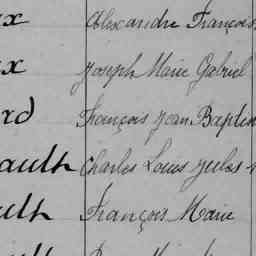 ux Alexandre François
ux Joseph Marie Gabriel
ard François Jean Baptis
ault Charles Louis Jules
ult François Marie